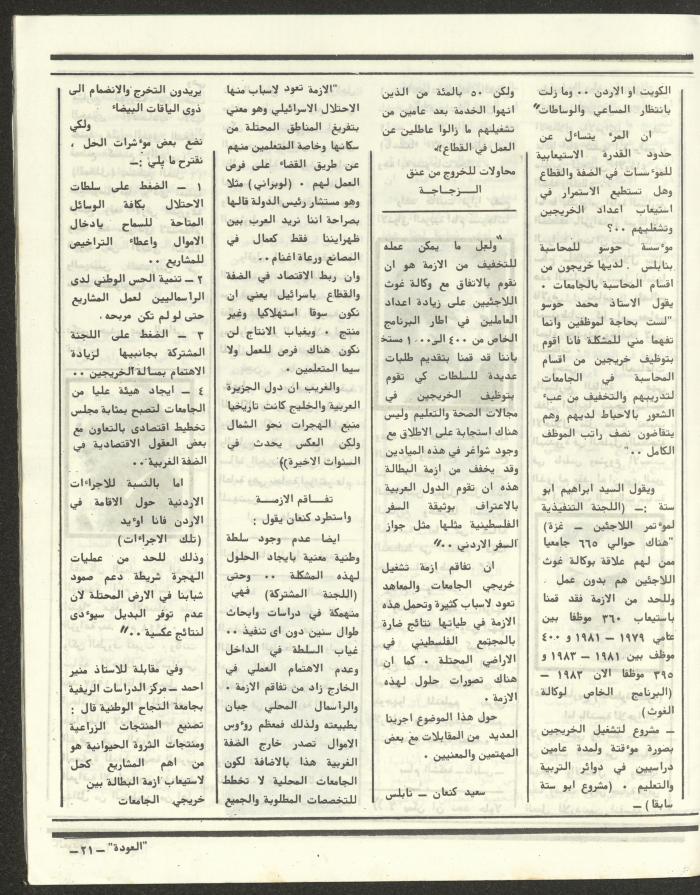 الكويت او الاردن ٠٠ وما زلت
بانتظار المساعي والوساطات"
ان المرء يتساءل عن
حدود القدرة الاستيعابية
للمؤسسات في الضفة والقطاع
وهل تستطيع الاستمرار في
استيعاب اعداد الخريجين
وتشغيلهم ٠٠؟
مؤسسة حوسو للمحاسبة
بنابلس . لديها خريجون من
اقسام المحاسبة بالجامعات ٠
يقول الاستاذ محمد حوسو
"لست بحاجة لموظفين وانما
تفهما مني للمشكلة فانا اقوم
بتوظيف خريجين من اقسام
المحاسبة في الجامعات
لتدريبهم والتخفيف من عبء
الشعور بالاحباط لديهم وهم
يتقاضون نصف راتب الموظف
الكامل ٠٠"
ويقول السيد ابراهيم ابو
ستة :ـ (اللجنة التنفيذية
لمؤتمر اللاجئين ــ غزة)
"هناك حوالي ٦٦٥ جامعيا
ممن لهم علاقة بوكالة غوث
اللاجئين هم بدون عمل ٠
وللحد من الازمة فقد قمنا
باستيعاب ٣٦٠ موظفا بين
عامي ١٩٧٩ ــ ١٩٨١ و ٤٠٠
موظف بين ١٩٨١ ــ ١٩٨٣ و
٣٩٥ موظفا الان ١٩٨٣ ــ
(البرنامج الخاص لوكالة
الغوث)
ــ مشروع لتشغيل الخريجين
بصورة مؤقتة ولمدة عامين
دراسيين في دوائر التربية
والتعليم ٠ (مشروع ابو ستة
سابقا) ــ
ولكن ٥٠ بالمئة من الذين
انهوا الخدمة بعد عامين من
تشغيلهم ما زالوا عاطلين عن
العمل في القطاع)»
محاولات للخروج من عنق
الــزجــاجــة
"ولعل ما يمكن عمله
للتخفيف من الازمة هو ان
نقوم بالاتفاق مع وكالة غوث
اللاجئيين على زيادة اعداد
العاملين في اطار البرنامج
الخاص من ٤٠٠ الى ١٠٠٠ مستخ
باننا قد قمنا بتقديم طلبات
عديدة للسلطات كي تقوم
بتوظيف الخريجين في
مجالات الصحة والتعليم وليس
هناك استجابة على الاطلاق مع
وجود شواغر في هذه الميادين
وقد يخفف من ازمة البطالة
هذه ان تقوم الدول العربية
بالاعتراف بوثيقة السفر
الفلسطينية مثلها مثل جواز
السفر الاردني ٠٠"
ان تفاقم ازمة تشغيل
خريجي الجامعات والمعاهد
تعود لاسباب كثيرة وتحمل هذه
الازمة في طياتها نتائج ضارة
بالمجتمع الفلسطيني في
الاراضي المحتلة ٠ كما ان
هناك تصورات حلول لهذه
الازمة ٠
حول هذا الموضوع اجرينا
العديد من المقابلات مع بعض
المهتمين والمعنيين ٠
سعيد كنعان ــ نابلس
"الازمة تعود لاسباب منها
الاحتلال الاسرائيلي وهو معني
بتفريغ المناطق المحتلة من
سكانها وخاصة المتعلمين منهم
عن طريق القضاء على فرص
العمل لهم ٠ (لوبراني) مثلا
وهو مستشار رئيس الدولة قالها
بصراحة اننا نريد العرب بين
ظهرانيننا فقط كعمال في
المصانع ورعاة اغنام ٠٠
وان ربط الاقتصاد في الضفة
والقطاع باسرائيل يعني ان
نكون سوقا استهلاكيا وغير
منتج ٠ وبغياب الانتاج لن
تكون هناك فرص للعمل ولا
سيما المتعلمين ٠
والغريب ان دول الجزيرة
العربية والخليج كانت تاريخيا
منبع الهجرات نحو الشمال
ولكن العكس يحدث في
السنوات الاخيرة))
تفــاقم الازمــــة
واستطرد كنعان يقول :
ايضا عدم وجود سلطة
وطنية معنية بايجاد الحلول
لهذه المشكلة ٠٠ وحتى
(اللجنة المشتركة) فهي
منهمكة في دراسات وابحاث
طوال سنين دون اى تنفيذ ٠٠
غياب السلطة في الداخل
وعدم الاهتمام العملي في
الخارج زاد من تفاقم الازمة ٠
والراسمال المحلي جبان
بطبيعته ولذلك فمعظم رؤوس
الاموال تصدر خارج الضفة
الغربية هذا بالاضافة لكون
الجامعات المحلية لا تخطط
للتخصصات المطلوبة والجميع
يريدون التخرج والانضمام الى
ذوى الياقات البيضاء
ولكي
نضع بعض مؤشرات الحل ،
نقترح ما يلي :ــ
١ ــ الضغط على سلطات
الاحتلال بكافة الوسائل
المتاحة للسماح بادخال
الاموال واعطاء التراخيص
للمشاريع ٠٠
٢ ــ تنمية الحس الوطني لدى
الرأسماليين لعمل المشاريع
حتى لو لم تكن مربحه ٠
٣ ــ الضغط على اللجنة
المشتركة بجانبيها لزيادة
الاهتمام بمسالة الخريجين ٠٠
٤ ــ ايجاد هيئة عليا من
الجامعات لتصبح بمثابة مجلس
تخطيط اقتصادى بالتعاون مع
بعض العقول الاقتصادية في
الضفة الغربية ٠٠
اما بالنسبة للاجراءات
الاردنية حول الاقامة في
الاردن فانا اؤيد
(تلك الاجراءات)
وذلك للحد من عمليات
الهجرة شريطة دعم صمود
شبابنا في الارض المحتلة لان
عدم توفر البديل سيؤدى
لنتائج عكسية ٠٠"
وفي مقابلة للاستاذ منير
احمد ــ مركز الدراسات الريفية
بجامعة النجاح الوطنية قال :
تصنيع المنتجات الزراعية
ومنتجات الثروة الحيوانية هو
من اهم المشاريع كحل
لاستيعاب ازمة البطالة بين
خريجي الجامعات
"العودة" ــ ٢١ ــ